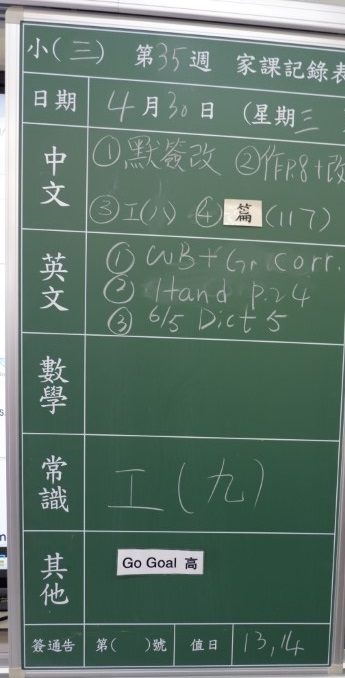 小(三) 第35週 家課記錄表
日期 4月30日 (星期三
中文 ①默簽改 ②作P.8+改
③工(八) ④篇(117)
英文 ① WB + Gr corr.
② Hand p.24
③ 6/5 Dict 5
數學
常識 工(九)
其他 Go Goal 高
簽通告 第( )號 值日 13,14